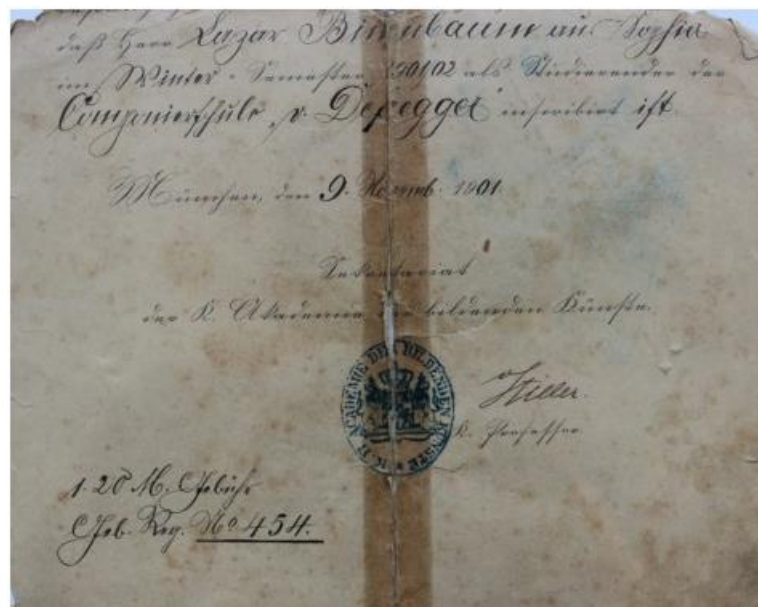 daß Herr Lazar Birnbaum aus Sophia
im Winter-Semester 1901/02 als Studierender der
Componierschule v. Defregger inscribirt ist.
München, den 9. Novemb. 1901.
Sekretariat
der K. Akademie der bildenden Künste.
K. B. ACADEMIE DER BILDENDEN KÜNSTE
Stieler.
K. Professor
1.20 M. Gebühr
Geb. Reg. No 454.